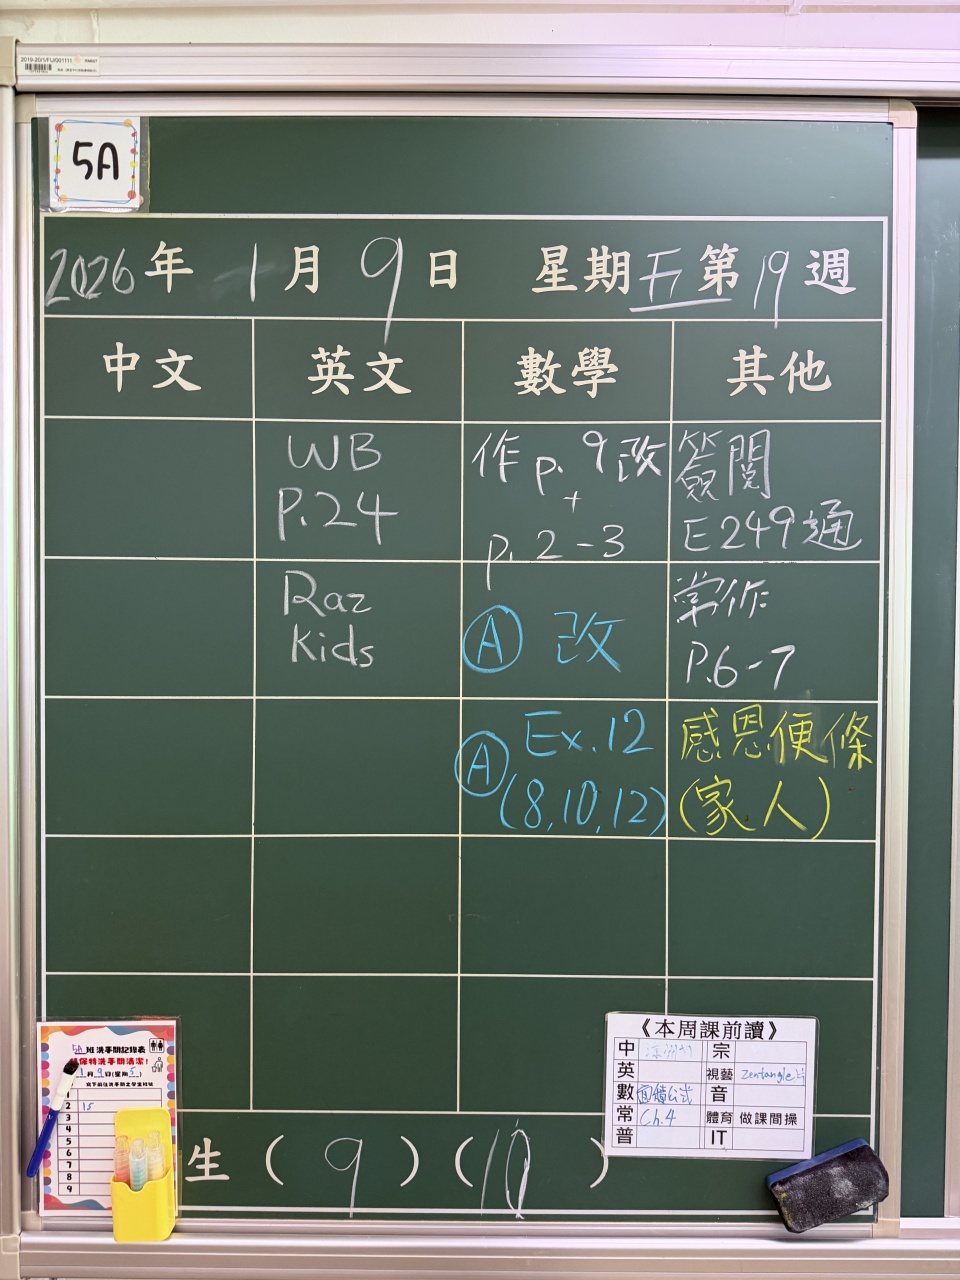 2019-20/1/FU/001111
5A
2026年 1月 9日 星期五 第19週
中文 英文 數學 其他
WB
P.24
作 p. 9 改
+
p. 2-3
簽閱
E249通
Raz
Kids
Ⓐ 改
常作
P.6-7
Ⓐ Ex.12
(8,10,12)
感恩便條
(家人)
5A班洗手間記錄表
保持洗手間清潔!
1月9日(星期5)
1
2 15
3
4
5
6
7
8
9
《本周課前讀》
中 宗
英 視藝 Zentangle
數 面積公式 音
常 Ch.4 體育 做課間操
普 IT
生 ( 9 ) ( 10 )